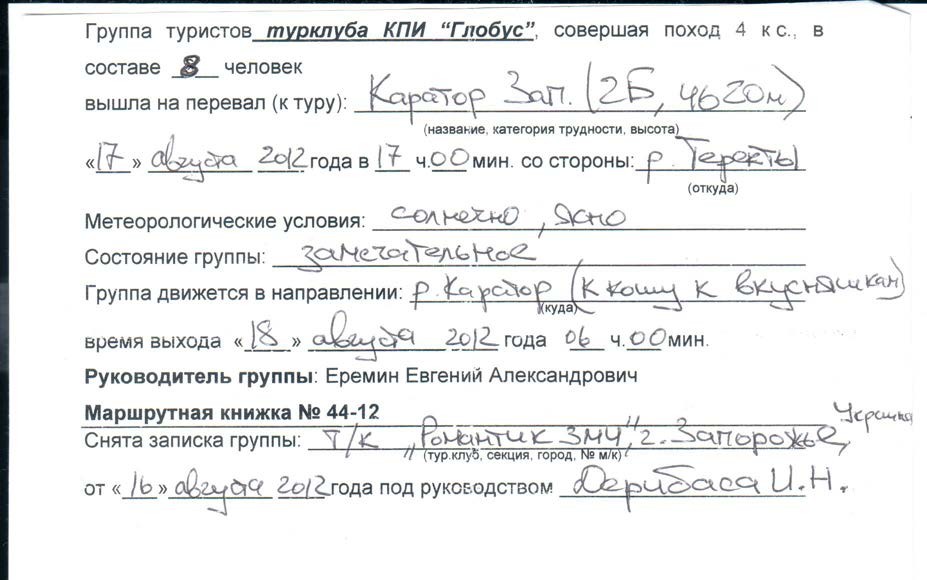 Группа туристов турклуба КПИ “Глобус”, совершая поход 4 к с., в
составе 8 человек
вышла на перевал (к туру): Каратор Зап. (2Б, 4620м)
(название, категория трудности, высота)
«17» августа 2012 года в 17 ч.00 мин. со стороны: р. Теректы
(откуда)
Метеорологические условия: солнечно, ясно
Состояние группы: замечательное
Группа движется в направлении: р. Каратор (к кошу к вкусняшкам)
(куда)
время выхода «18» августа 2012 года 06 ч.00 мин.
Руководитель группы: Еремин Евгений Александрович
Маршрутная книжка № 44-12
Снята записка группы: т/к „Романтик ЗМЧ", г. Запорожье, Украина
(тур.клуб, секция, город, № м/к)
от «16» августа 2012 года под руководством Дерибаса И.Н.